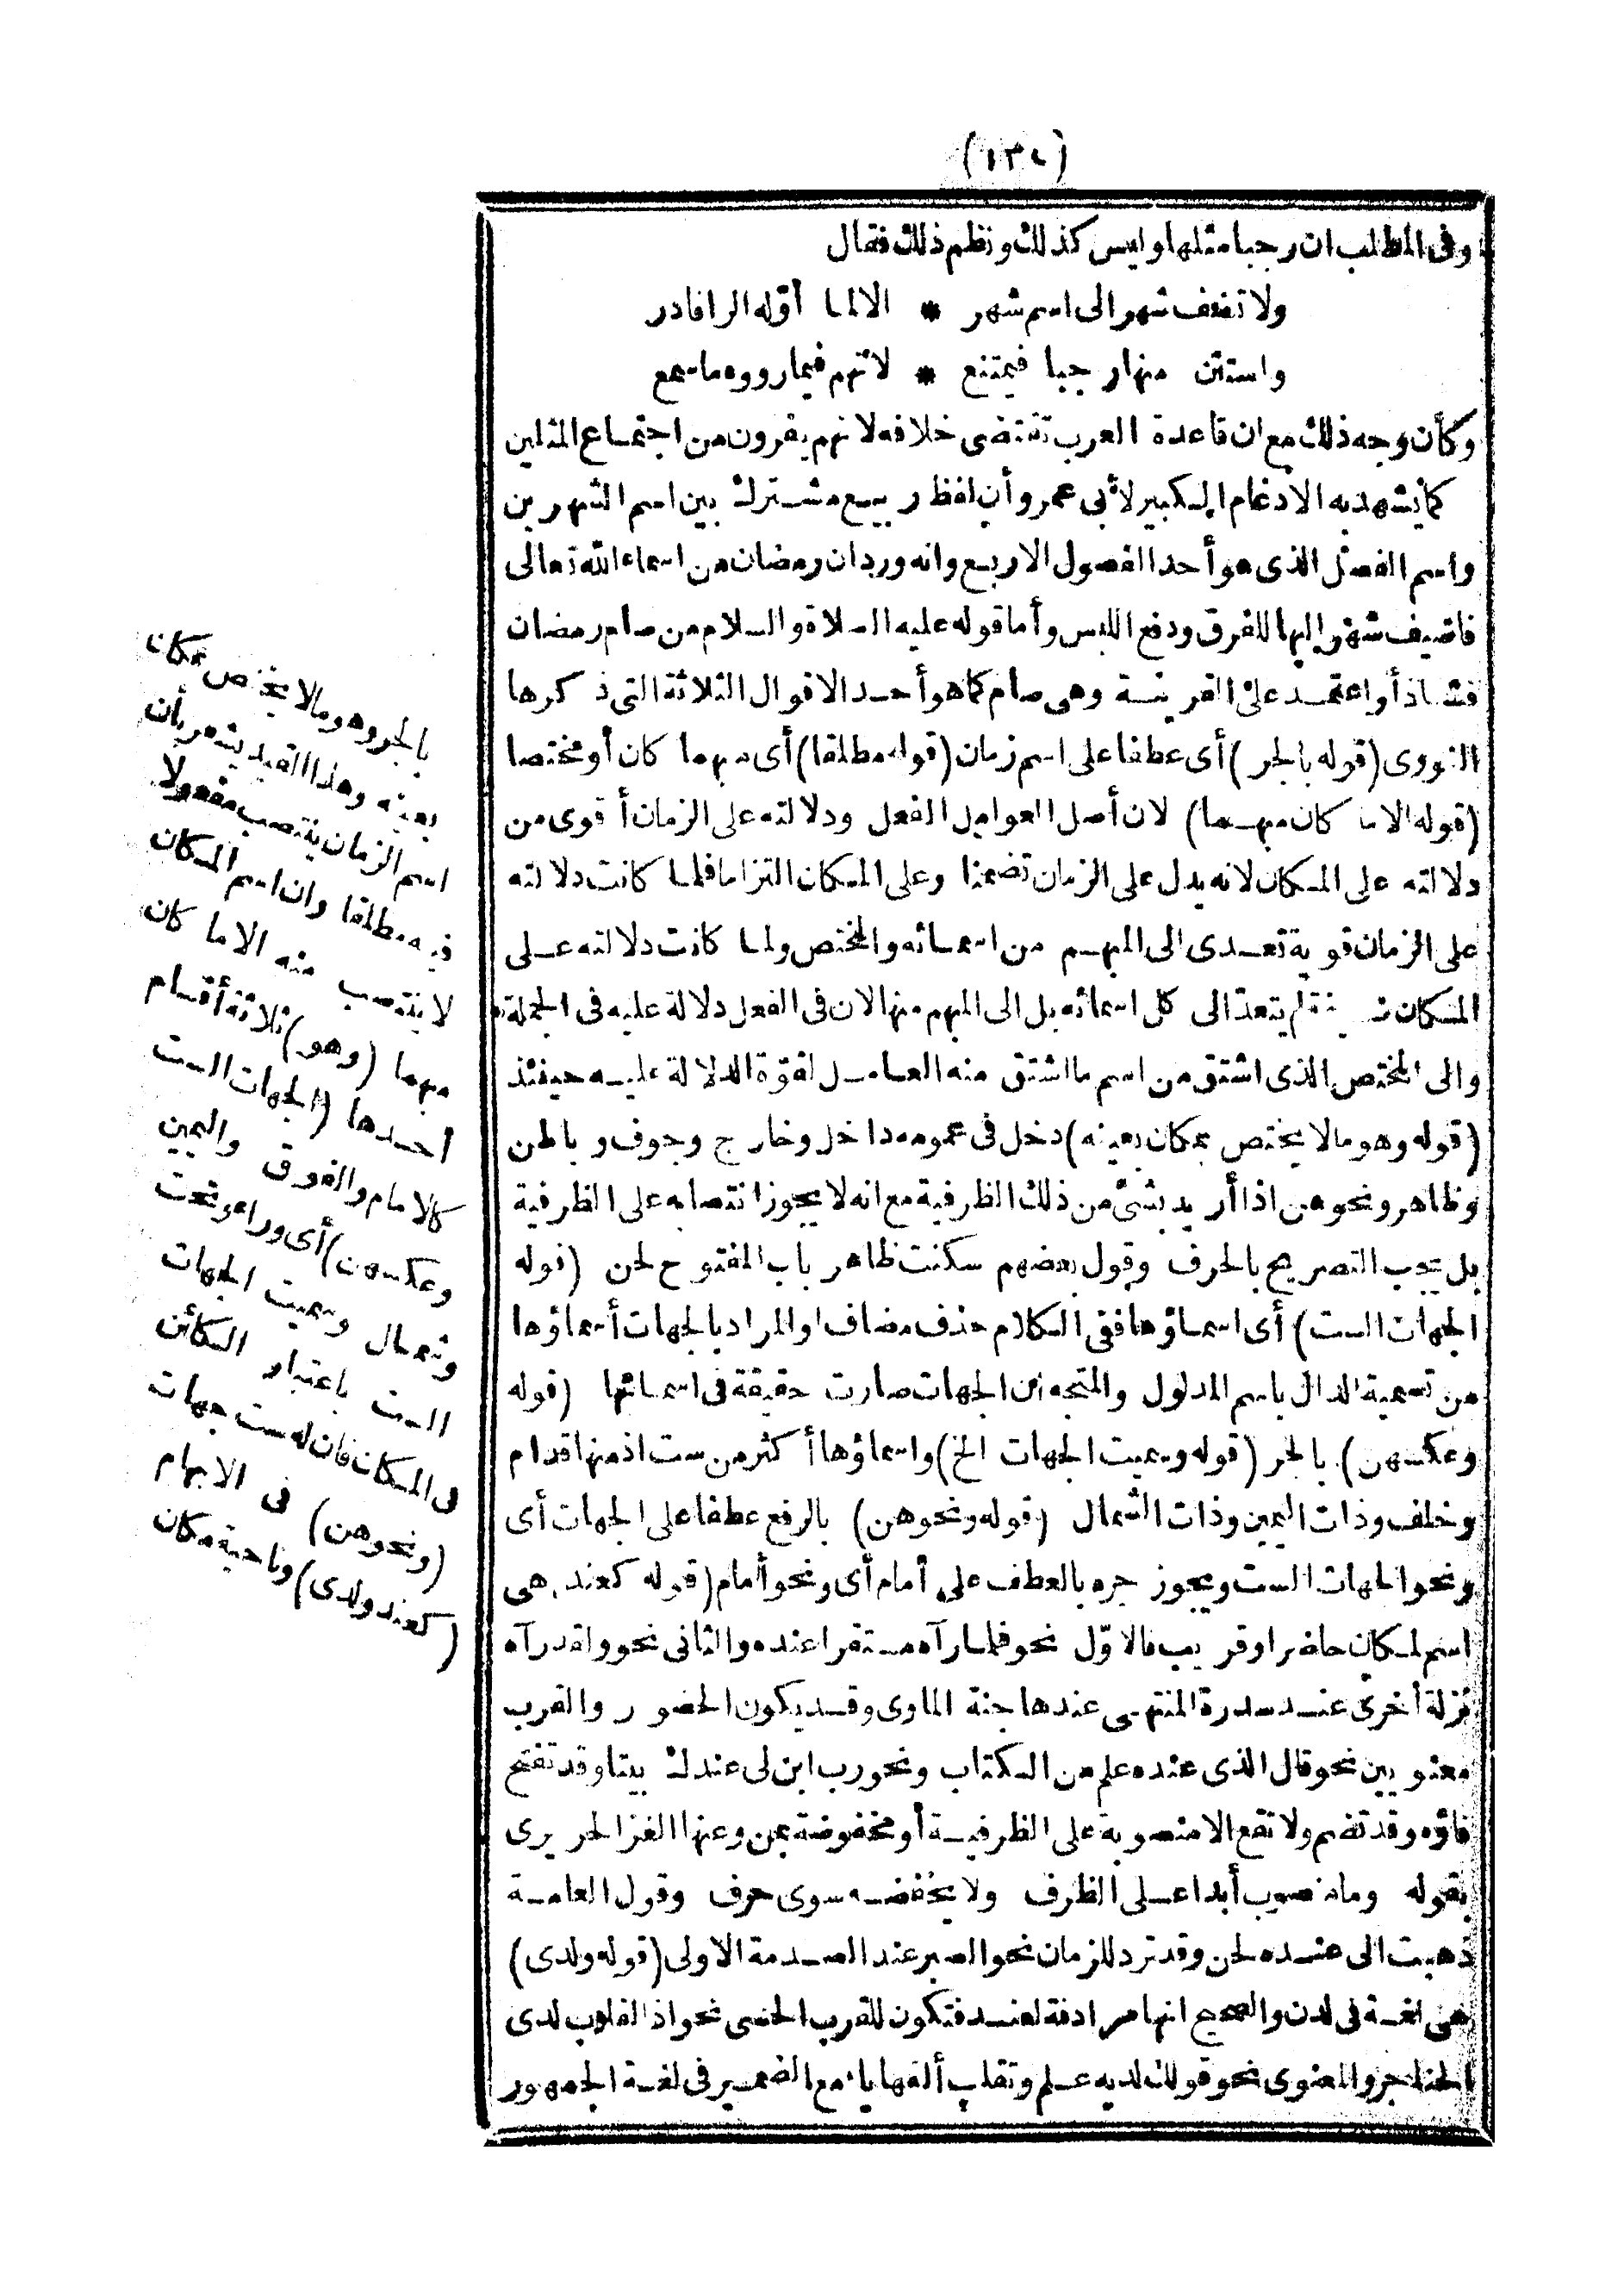 (١٣٤)
وفى المطلب ان رجبا مثلها وليس كذلك ونظم ذلك فقال
ولا تضف شهر الى اسم شهر * الا لما أوّله الرا فادر
واستثن منها رجبا فيمتنع * لانهم فيما رووه ما سمع
وكأن وجه ذلك مع ان قاعدة العرب تقتضى خلافه لانهم يفرون من اجتماع المثلين
كما يشهد به الادغام الكبير لأبى عمرو أن لفظ ربيع مشترك بين اسم الشهرين
واسم الفصل الذى هو أحد الفصول الاربع وانه ورد ان رمضان من اسماء الله تعالى
فاضيف شهر اليها للفرق ودفع اللبس وأما قوله عليه الصلاة والسلام من صام رمضان
فشاذ أو اعتمد على القرينة وهى صام كما هو أحد الاقوال الثلاثة التى ذكرها
النووى (قوله بالجر) أى عطفا على اسم زمان (قوله مطلقا) أى مبهما كان أو مختصا
(قوله الا ما كان مبهما) لان أصل العوامل الفعل ودلالته على الزمان أقوى من
دلالته على المكان لانه يدل على الزمان تضمنا وعلى المكان التزاما فلما كانت دلالته
على الزمان قوية تعدى الى المبهم من اسمائه والمختص ولما كانت دلالته على
المكان ضعيفة لم يتعد الى كل اسمائه بل الى المبهم منها لان فى الفعل دلالة عليه فى الجملة
والى المختص الذى اشتق من اسم ما اشتق منه العامل لقوة الدلالة عليه حينئذ
(قوله وهو ما لا يختص بمكان بعينه) دخل فى عمومه داخل وخارج وجوف وباطن
وظاهر ونحوهن اذا أريد بشئ من ذلك الظرفية مع انه لا يجوز انتصابه على الظرفية
بل يجب التصريح بالحرف وقول بعضهم سكنت ظاهر باب المفتوح لحن (قوله
الجهات الست) أى اسماؤها ففى الكلام حذف مضاف او المراد بالجهات أسماؤها
من تسمية الدال باسم المدلول والمتجه ان الجهات صارت حقيقة فى اسمائها (قوله
وعكسهن) بالجر (قوله وسميت الجهات الخ) واسماؤها أكثر من ست اذ منها قدام
وخلف وذات اليمين وذات الشمال (قوله ونحوهن) بالرفع عطفا على الجهات أى
ونحو الجهات الست ويجوز جره بالعطف على أمام أى ونحو أمام (قوله كعند) هى
اسم لمكان حاضر او قريب فالاوّل نحو فلما رآه مستقرا عنده والثانى نحو ولقد رآه
نزلة أخرى عند سدرة المنتهى عندها جنة الماوى وقد يكون الحضور والقرب
معنويين نحو قال الذى عنده علم من الكتاب ونحو رب ابن لى عندك بيتا وقد تفتح
فاؤه وقد تضم ولا تقع الا منصوبة على الظرفية أو مخفوضة بمن وعنها الغز الحريرى
بقوله وما منصوب أبدا على الظرف ولا يخفضه سوى حرف وقول العامة
ذهبت الى عنده لحن وقد ترد للزمان نحو الصبر عند الصدمة الاولى (قوله ولدى)
هى لغة فى لدن والصحيح انها مرادفة لعند فتكون للقرب الحسى نحو اذ القلوب لدى
الحناجر والمعنوى نحو قولك لديه علم وتقلب ألفها ياء مع الضمير فى لغة الجمهور
بالجر وهو ما لا يختص بمكان
بعينه وهذا القيد يشعر بأن
اسم الزمان ينتصب مفعولا
فيه مطلقا وان اسم المكان
لا ينتصب منه الا ما كان
مبهما (وهو) ثلاثة أقسام
أحدها (الجهات الست
كالامام والفوق واليمين
وعكسهن) أى وراء وتحت
وشمال وسميت الجهات
الست باعتبار الكائن
فى المكان فان له ست جهات
(ونحوهن) فى الابهام
(كعند ولدى) وناحية مكان